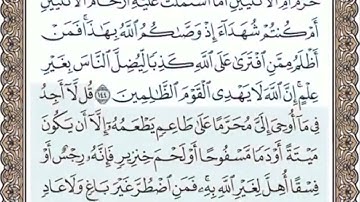 حَرَّمَ أَمِ ٱلْأُنثَيَيْنِ أَمَّا ٱشْتَمَلَتْ عَلَيْهِ أَرْحَامُ ٱلْأُنثَيَيْنِ
أَمْ كُنتُمْ شُهَدَآءَ إِذْ وَصَّىٰكُمُ ٱللَّهُ بِهَٰذَا ۚ فَمَنْ
أَظْلَمُ مِمَّنِ ٱفْتَرَىٰ عَلَى ٱللَّهِ كَذِبًا لِّيُضِلَّ ٱلنَّاسَ بِغَيْرِ
عِلْمٍ ۗ إِنَّ ٱللَّهَ لَا يَهْدِى ٱلْقَوْمَ ٱلظَّٰلِمِينَ ١٤٤ قُل لَّآ أَجِدُ
فِى مَآ أُوحِىَ إِلَىَّ مُحَرَّمًا عَلَىٰ طَاعِمٍ يَطْعَمُهُۥٓ إِلَّآ أَن يَكُونَ
مَيْتَةً أَوْ دَمًا مَّسْفُوحًا أَوْ لَحْمَ خِنزِيرٍ فَإِنَّهُۥ رِجْسٌ أَوْ
فِسْقًا أُهِلَّ لِغَيْرِ ٱللَّهِ بِهِۦ ۚ فَمَنِ ٱضْطُرَّ غَيْرَ بَاغٍ وَلَا عَادٍ